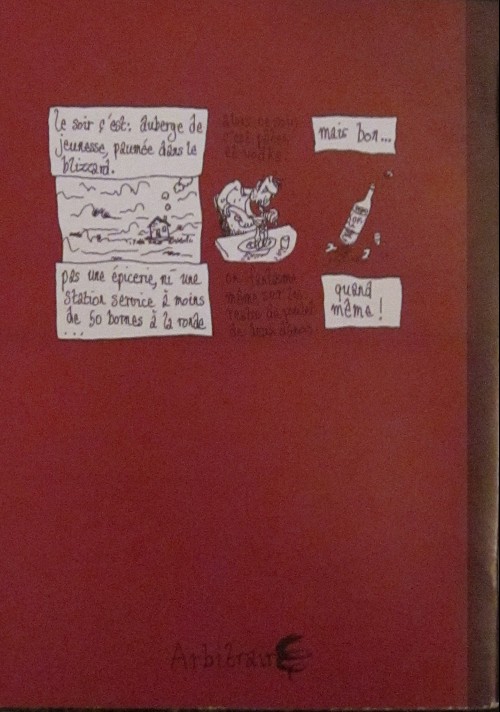 le soir c'est: auberge de
jeunesse, paumée dans le
blizzard.
pas une épicerie, ni une
station service à moins
de 50 bornes à la ronde
...
alors ce soir
c'est pâtes
et vodka.
on
même sur les
restes de
de
mais bon...
quand
même !
Arbitraire